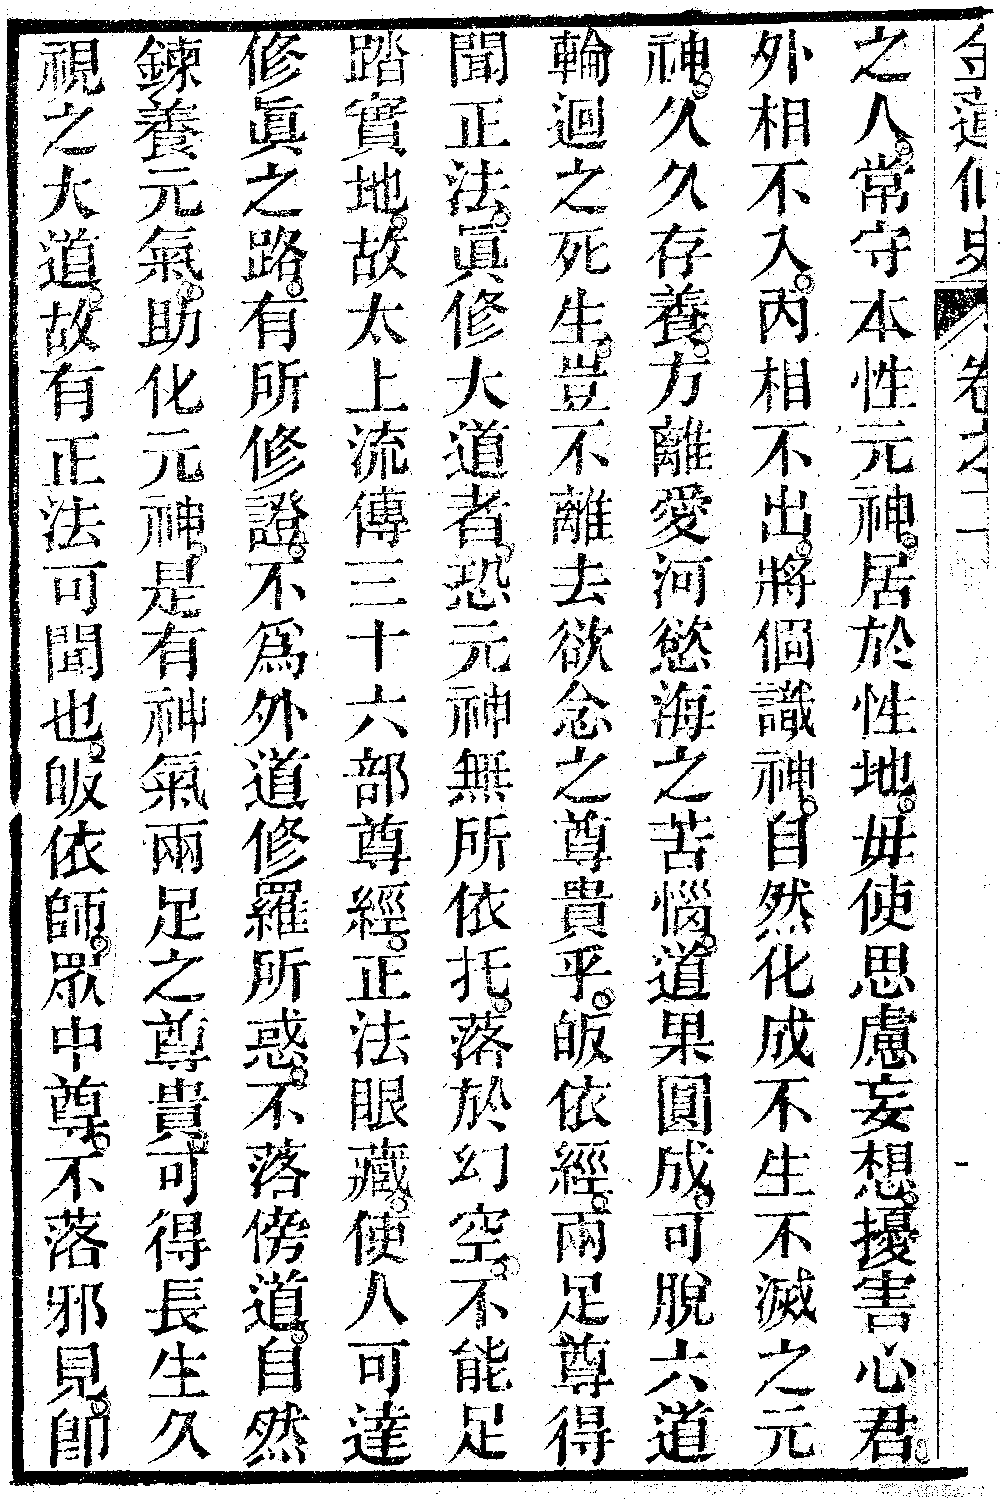 金蓮仙史 卷之二
之人。常守本性元神。居於性地。毋使思慮妄想。擾害心君。
外相不入。內相不出。將個識神。自然化成不生不滅之元
神。久久存養。方離愛河慾海之苦惱。道果圓成。可脫六道
輪迴之死生。豈不離去欲念之尊貴乎。皈依經。兩足尊得
聞正法。眞修大道者。恐元神無所依托。落於幻空。不能足
踏實地。故太上流傳三十六部尊經。正法眼藏。使人可達
修眞之路。有所修證。不爲外道修羅所惑。不落傍道。自然
鍊養元氣。助化元神。是有神氣兩足之尊貴。可得長生久
視之大道。故有正法可聞也。皈依師。眾中尊。不落邪見。卽